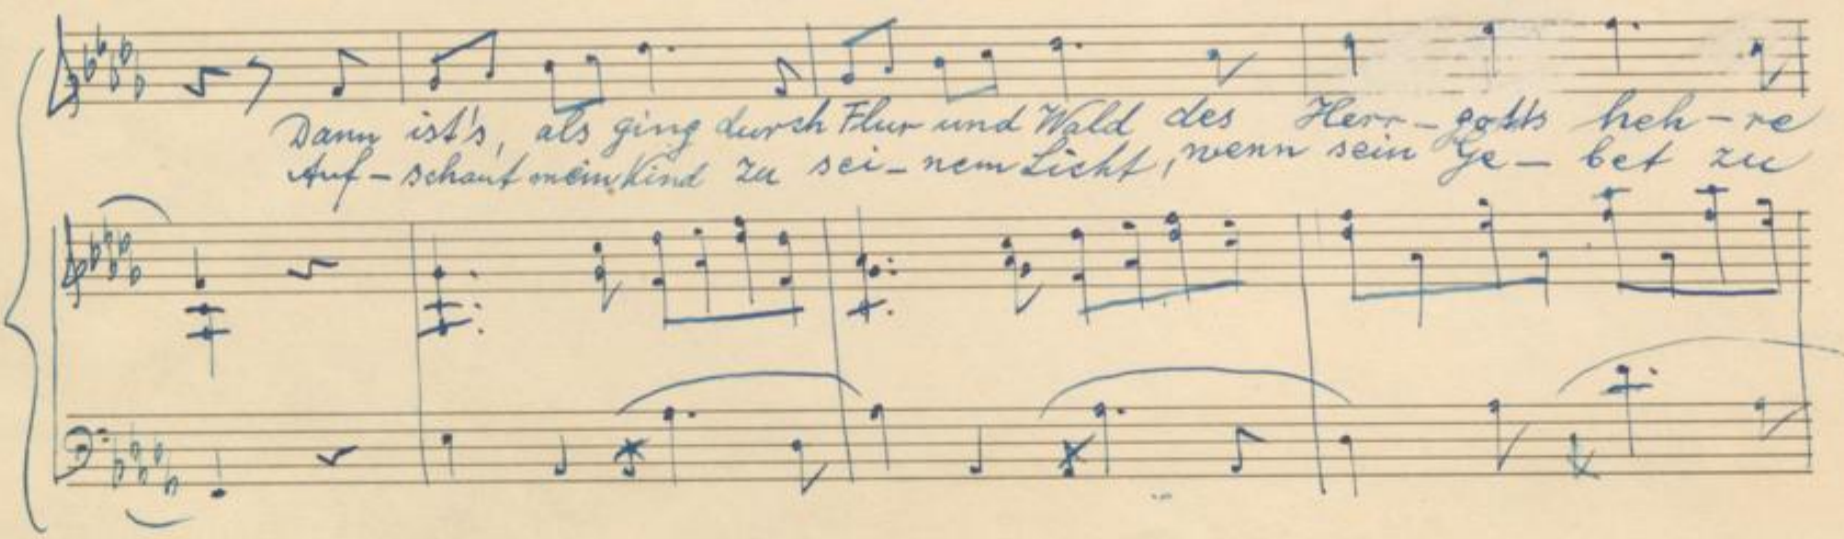 Dann ist's, als ging durch Flur und Wald des Herr-gotts heh-re
Auf-schaut mein Kind zu sei-nem Licht, wenn sein Ge-bet zu